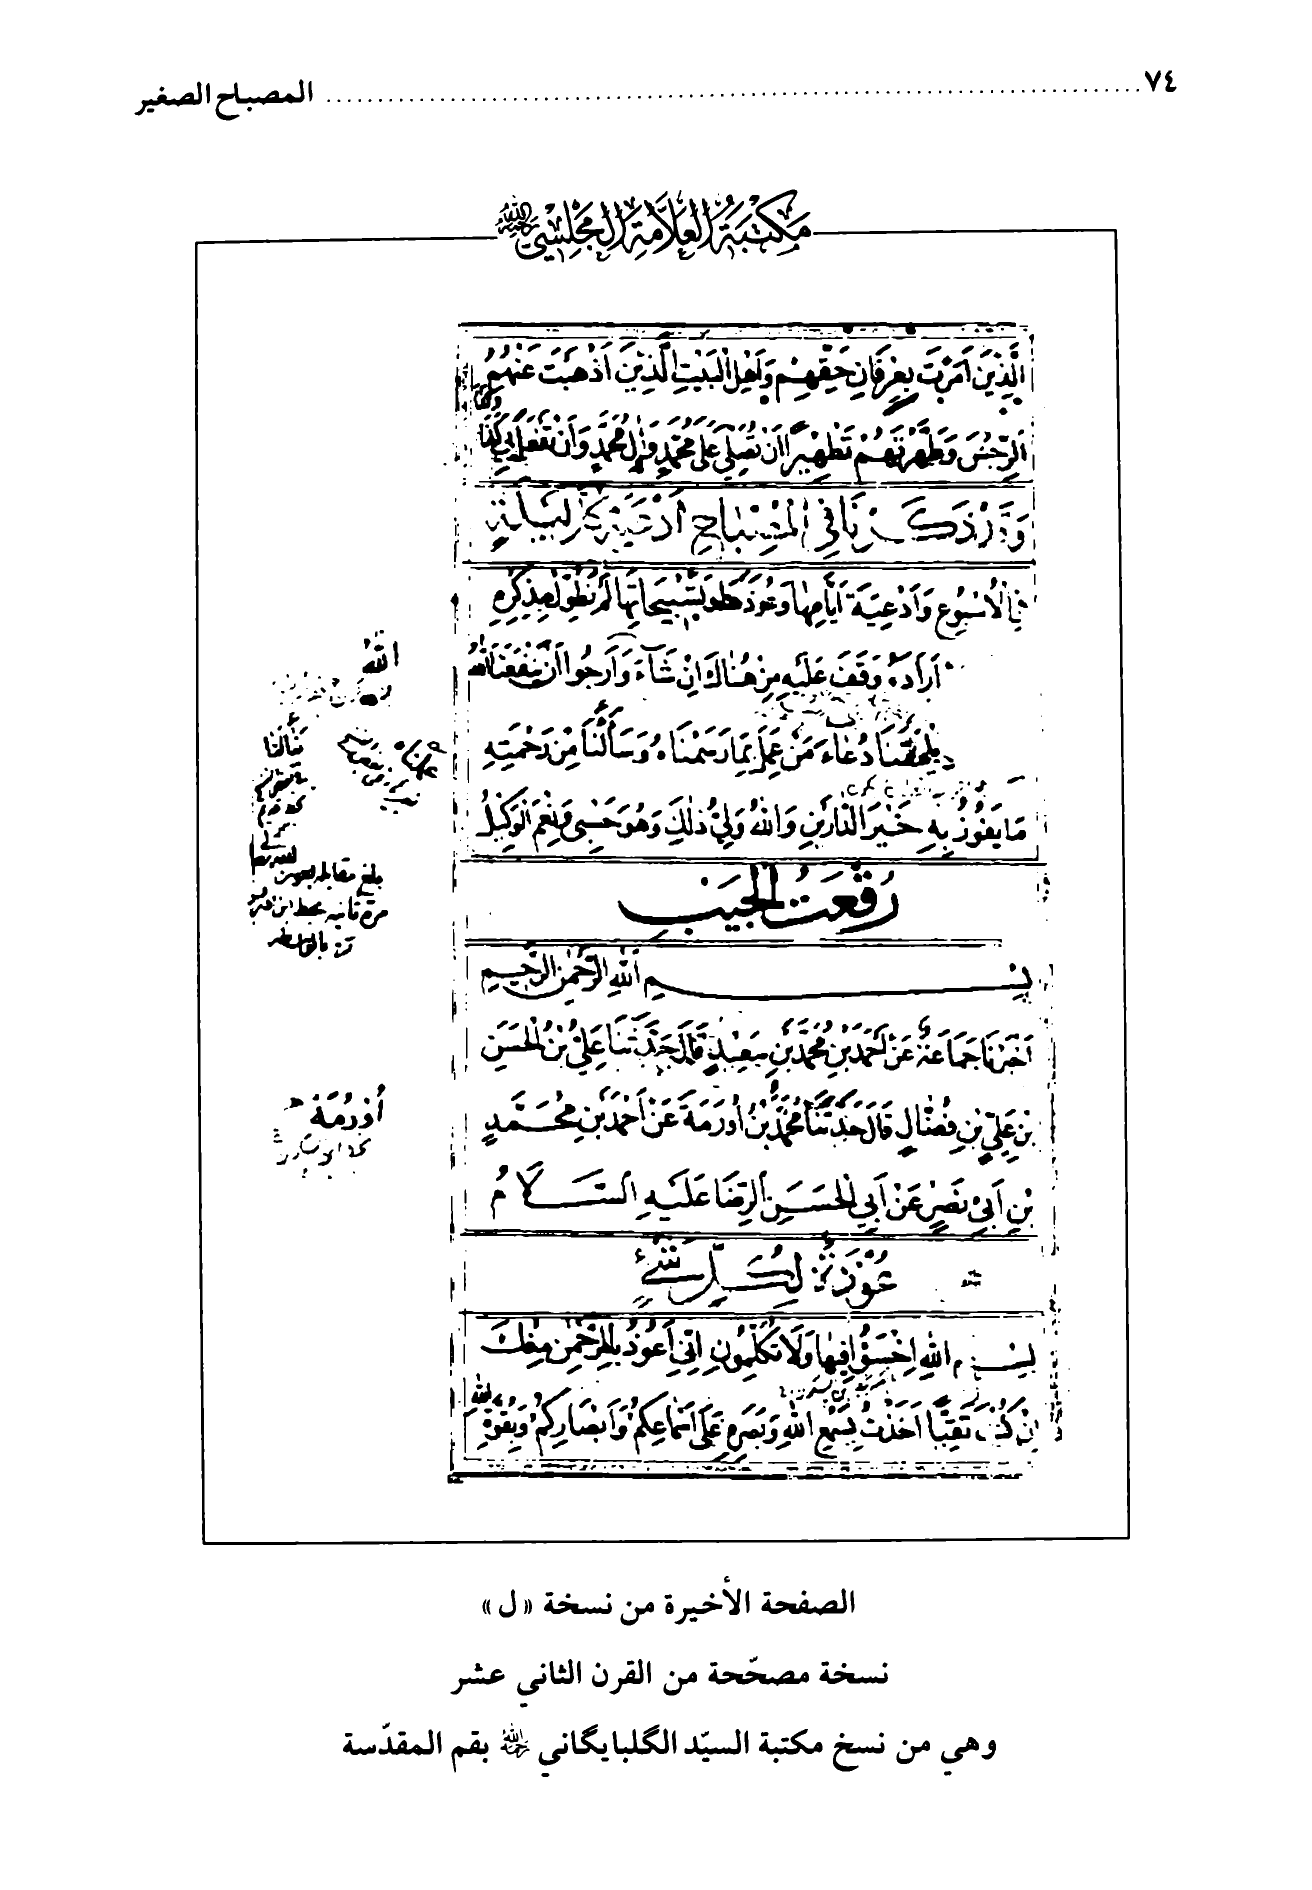 ٧٤ ........ المصباح الصغير
مَكتبَةُ العَلّامَةِ المَجلِسي
الَّذِينَ اَمَرْتَ بِعِرْفَانِ حَقِّهِمْ وَاَهْلِ الْبَيْتِ الَّذِينَ اَذْهَبْتَ عَنْهُمُ
الرِّجْسَ وَطَهَّرْتَهُمْ تَطْهِيرًا اَنْ تُصَلِّيَ عَلَى مُحَمَّدٍ وَاٰلِ مُحَمَّدٍ وَاَنْ تَفْعَلَ بِي كَذَا
وكذا
وَقَدْ ذَكَرْنَا فِي الْمِصْبَاحِ اَدْعِيَةً لِكُلِّ لَيْلَةٍ
الْاُسْبُوعِ وَاَدْعِيَةَ اَيَّامِهَا وَعُوَذَهَا وَتَسْبِيحَاتِهَا لَمْ نُطَوِّلْ بِذِكْرِهِ
اَرَادَهُ وَقَفَ عَلَيْهِ مِنْ هُنَاكَ اِنْ شَآءَ وَاَرْجُوا اَنْ يَنْفَعَنَا اللهُ
وَيَلْحَقَنَا دُعَاءَ مَنْ عَمِلَ بِمَا رَسَمْنَاهُ وَسَأَلْنَا مِنْ رَحْمَتِهِ
مَا يَفُوزُ بِهِ خَيْرَ الدَّارَيْنِ وَاللهُ وَلِيُّ ذٰلِكَ وَهُوَ حَسْبِي وَنِعْمَ الْوَكِيلُ
رُقْعَتُ الْجَيْبِ
بِسْمِ اللهِ الرَّحْمٰنِ الرَّحِيمِ
اَخْبَرَنَا جَمَاعَةٌ عَنْ اَحْمَدَ بْنِ مُحَمَّدِ بْنِ سَعِيدٍ قَالَ حَدَّثَنَا عَلِيُّ بْنُ الْحَسَنِ
بْنِ عَلِيِّ بْنِ فَضَّالٍ قَالَ حَدَّثَنَا مُحَمَّدُ بْنُ اُورَمَةَ عَنْ اَحْمَدَ بْنِ مُحَمَّدِ
بْنِ اَبِي نَصْرٍ عَنْ اَبِي الْحَسَنِ الرِّضَا عَلَيْهِ السَّلَامُ
عُوْذَةٌ لِكُلِّ شَيْءٍ
بِسْمِ اللهِ اخْسَؤُا فِيهَا وَلَا تُكَلِّمُونِ اِنِّي اَعُوذُ بِالرَّحْمٰنِ مِنْكَ
اِنْ كُنْتَ تَقِيًّا اَخَذْتُ بِسَمْعِ اللهِ وَبَصَرِهِ عَلَى اَسْمَاعِكُمْ وَاَبْصَارِكُمْ وَبِقُوَّةِ
الله
الله
سألنا
بلغ مقابلة
مرة ثانية بخط ابن
اُوْرُمَة
الصفحة الأخيرة من نسخة «ل»
نسخة مصحّحة من القرن الثاني عشر
وهي من نسخ مكتبة السيّد الگلبايگاني رحمه الله بقم المقدّسة